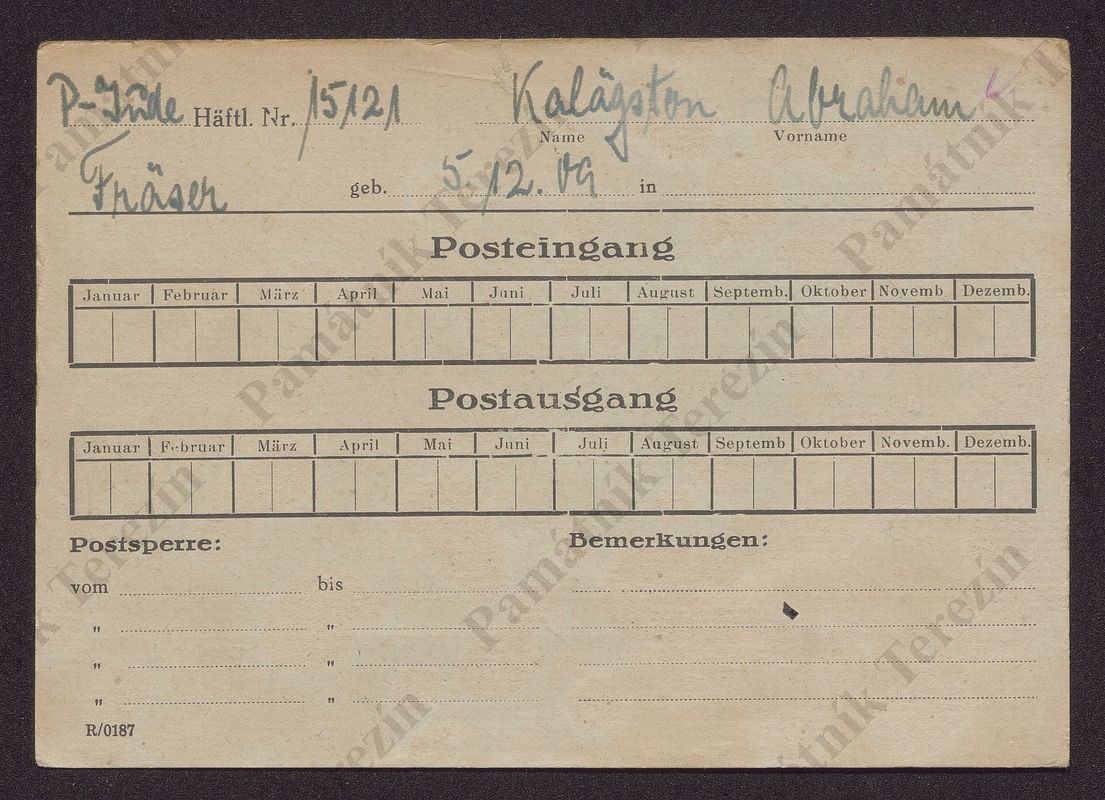 P-Jude Häftl. Nr. 15121 Kalägston Abraham
Name Vorname
Fräser geb. 5/12.09 in
Posteingang
Januar Februar März April Mai Juni Juli August Septemb. Oktober Novemb. Dezemb.
Postausgang
Januar Februar März April Mai Juni Juli August Septemb Oktober Novemb. Dezemb.
Postsperre: Bemerkungen:
vom bis
" "
" "
" "
R/0187
Památník Terezín
Památník Terezín
Památník Terezín
Památník Terezín